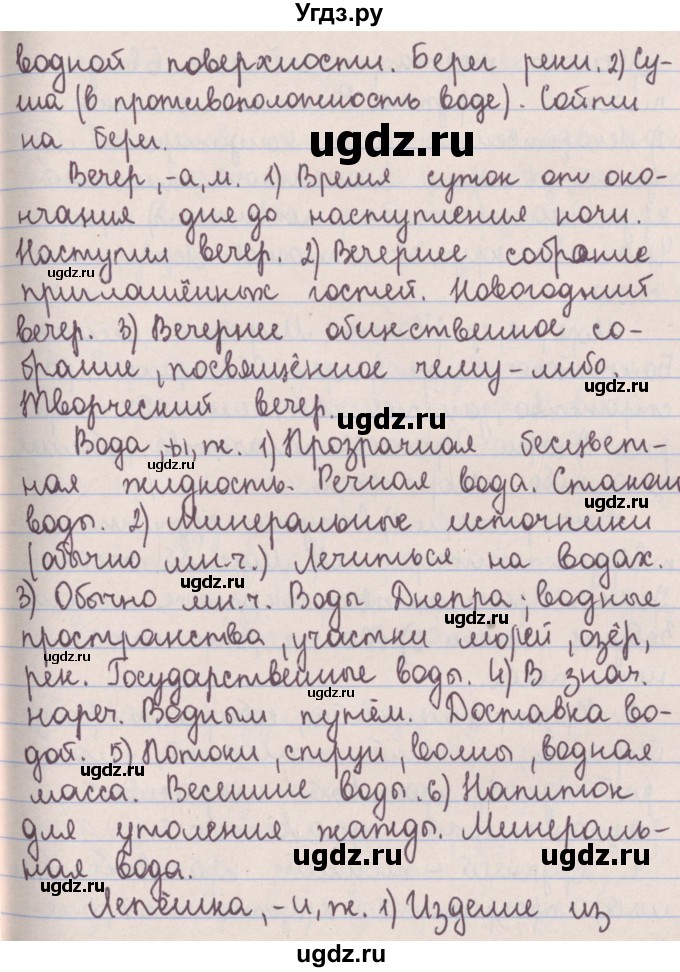 Угдз.ру
водной поверхности. Берег реки. 2) Су-
ша (в противоположность воде). Сойти
на берег.
ugdz.ru
Вечер, -а, м. 1) Время суток от око-
нчания дня до наступления ночи.
Наступил вечер. 2) Вечернее собрание
ugdz.ru
приглашённых гостей. Новогодний
ugdz.ru
вечер. 3) Вечернее общественное со-
брание, посвящённое чему-либо.
ugdz.ru
Творческий вечер.
ugdz.ru
Вода, -ы, ж. 1) Прозрачная бесцвет-
ugdz.ru
ная жидкость. Речная вода. Стакан
ugdz.ru
воды. 2) Минеральные источники
(обычно мн.ч.) Лечиться на водах.
ugdz.ru
3) Обычно мн.ч. Воды Днепра; водные
ugdz.ru
пространства, участки морей, озёр,
ugdz.ru
рек. Государственные воды. 4) В знач.
ugdz.ru
нареч. Водным путём. Доставка во-
дой. 5) Потоки, струи, волны, водная
ugdz.ru
масса. Весенние воды. 6) Напиток
для утоления жажды. Минераль-
ugdz.ru
ugdz.ru
ная вода.
Лепёшка, -и, ж. 1) Изделие из
ugdz.ru